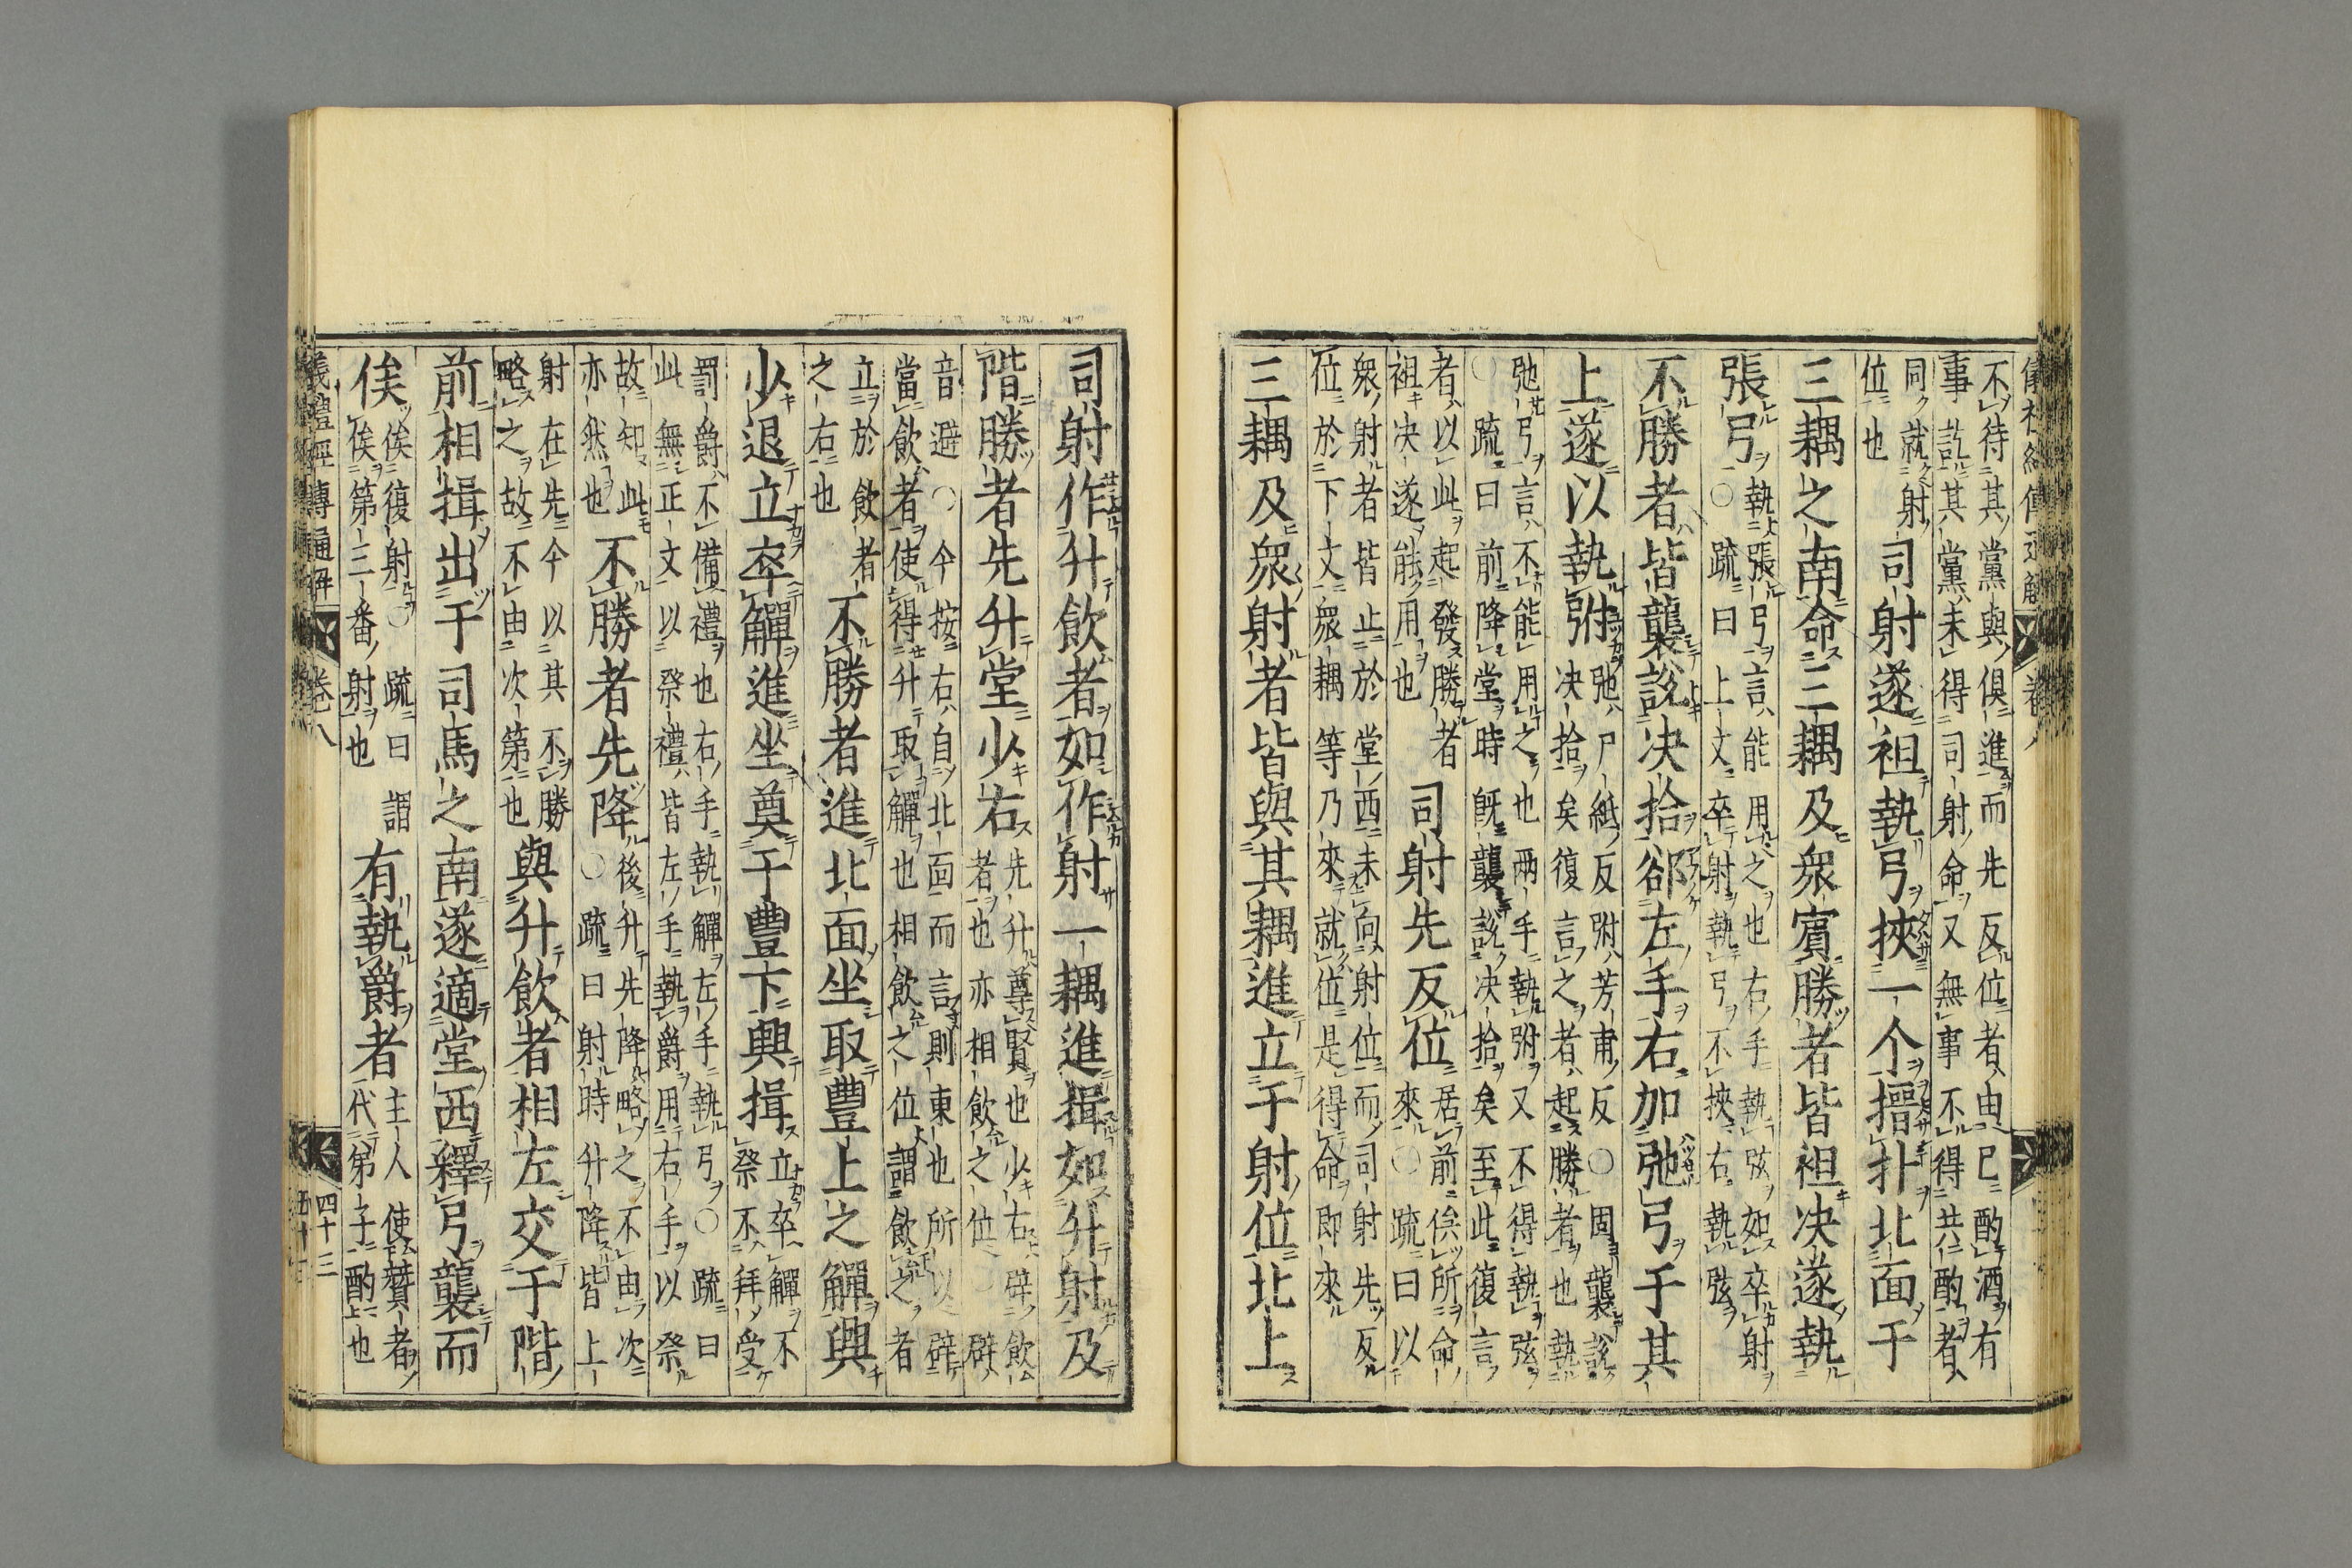 卷八
不待其黨與俱進而先反位者由已酌酒有
事訖其黨未得司射命又無事不得共酌者
同就射
位也
司射遂袒執弓挾一个搢扑北面于
三耦之南命三耦及衆賓勝者皆袒决遂執
張弓
執張弓言能用之也右手執弦如卒射
○疏曰上文卒射執弓不挾右執弦
不勝者皆襲說决拾郤左手右加弛弓于其
上遂以執弣
弛尸紙反弣芳甫反○固襲說
决拾矣復言之者起勝者也執
弛弓言不能用之也兩手執弣又不得執弦
○疏曰前降堂時旣襲說决拾矣至此復言
者以此起發勝者
袒决遂能用也
司射先反位
居前俟所命
來○疏曰以
衆射者皆止於堂西未向射位而司射先反
位於下文衆耦等乃來就位是得命即來
三耦及衆射者皆與其耦進立于射位北上
司射作升飲者如作射一耦進揖如升射及
階勝者先升堂少右
先升尊賢也少右辟飲
者也亦相飲之位 辟
音避○今按右自北面而言則東也所以辟
當飲者使得升取觶也相飲之位謂飲之者
立於飲者
之右也
不勝者進北面坐取豐上之觶興
少退立卒觶進坐奠于豐下興揖
立卒觶不
祭不拜受
罰爵不備禮也右手執觶左手執弓○疏曰
此無正文以祭禮皆左手執爵用右手以祭
故知此
亦然也
不勝者先降
後升先降略之不由次
○疏曰射時升降皆上
射在先今以其不勝
略之故不由次第也
與升飲者相左交于階
前相揖出于司馬之南遂適堂西釋弓襲而
俟
俟復射○疏曰謂
俟第三番射也
有執爵者
主人使贊者
代弟子酌也
儀禮經傳通解 卷八 四十三